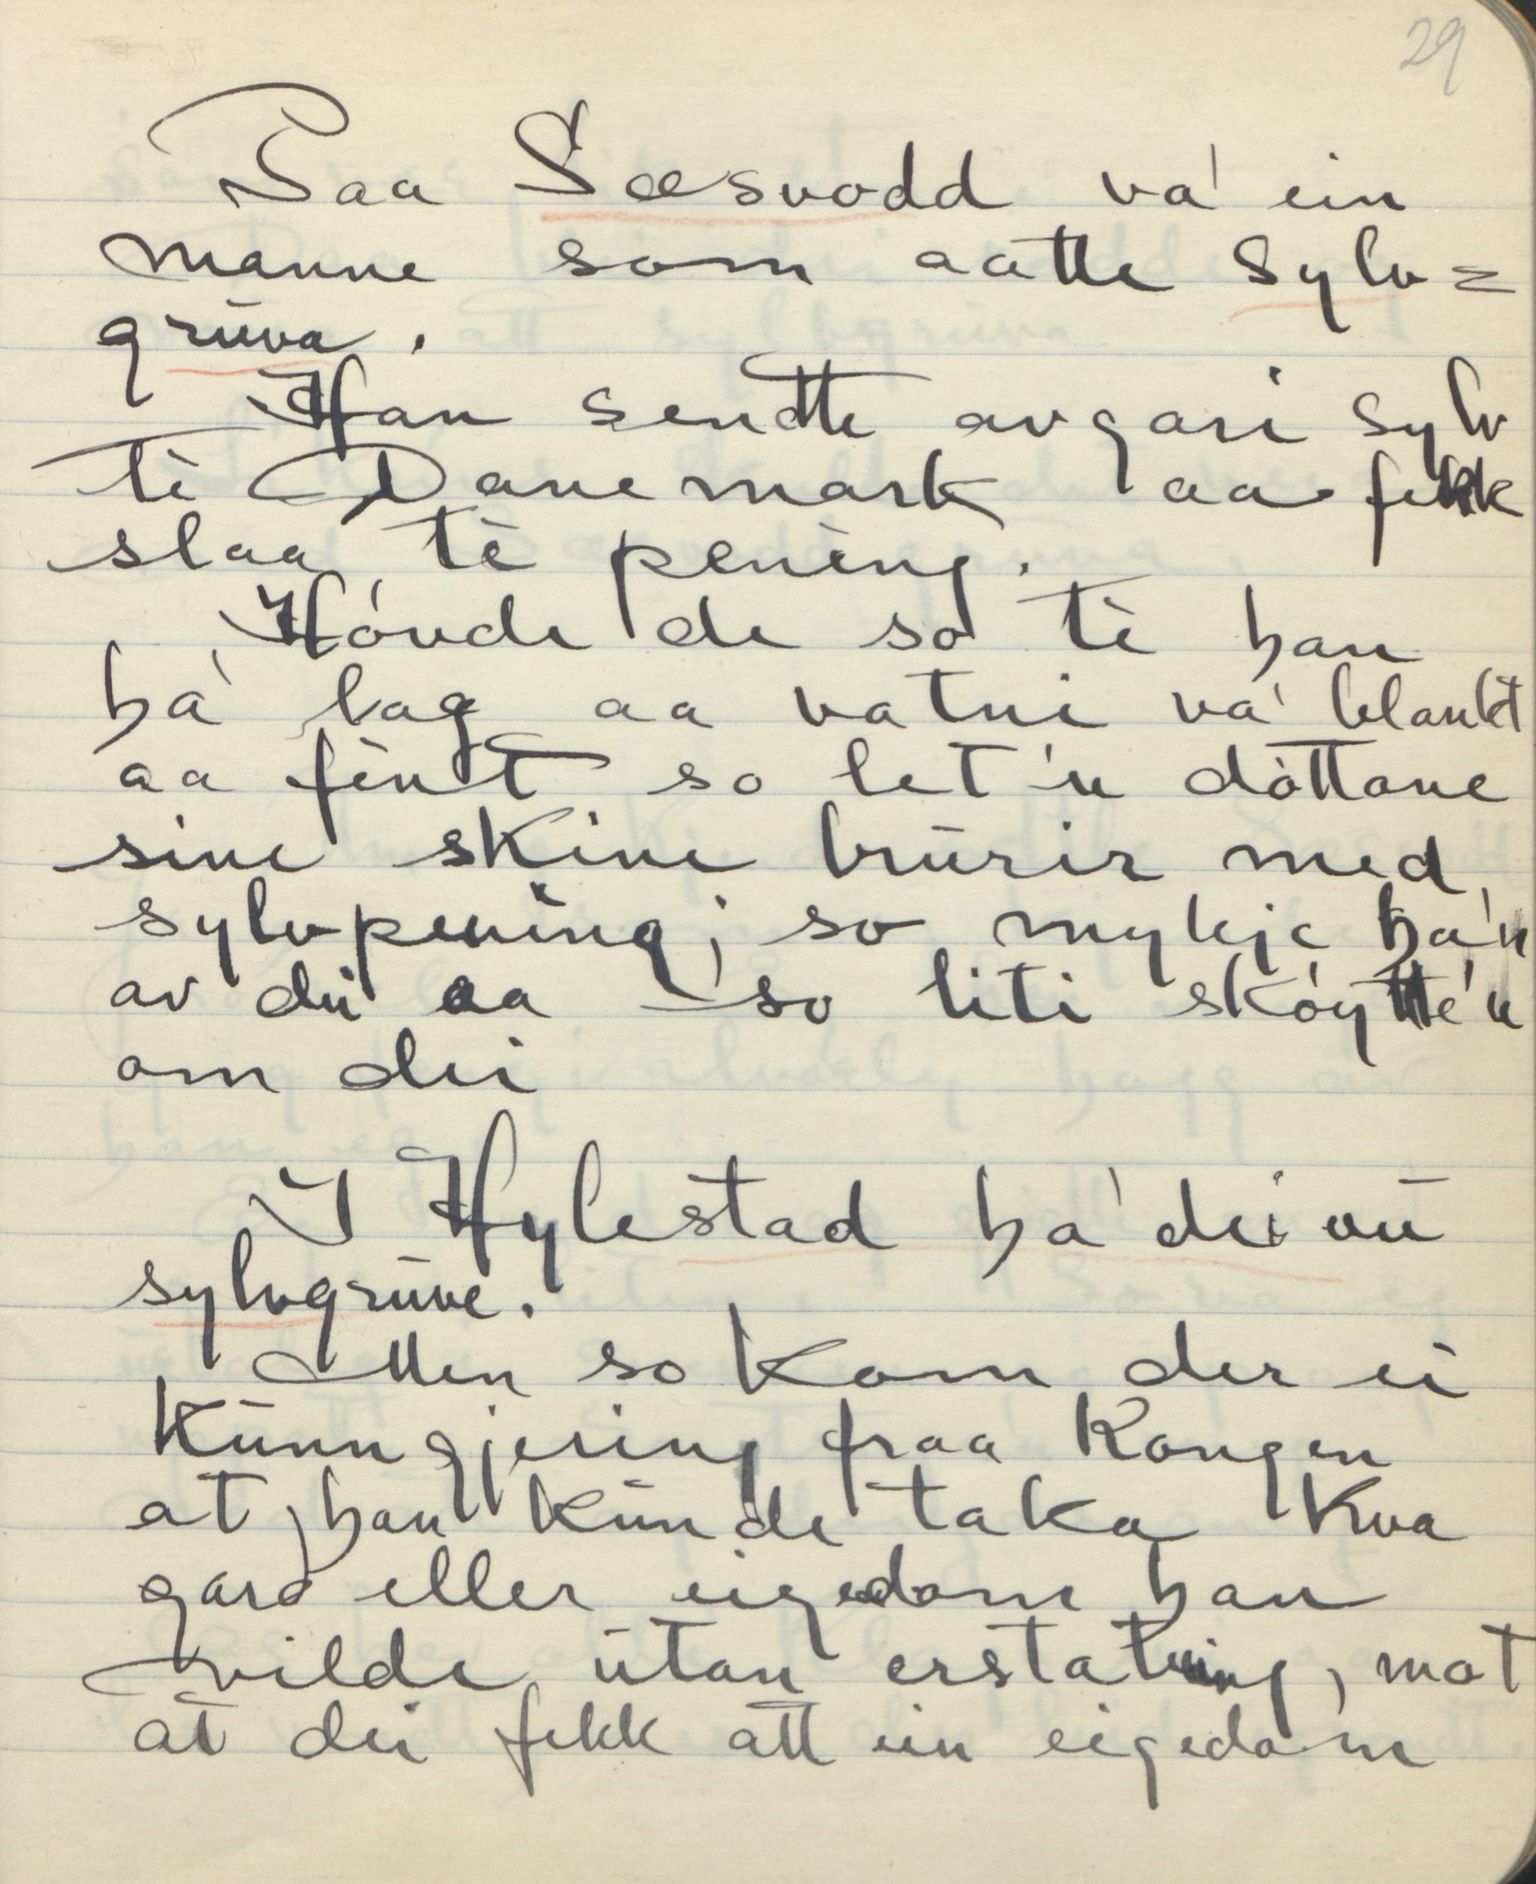 29
Paa Sæsvodd va' ein
manne som aatte sylv=
grūva.
Han sendte avgari sylv
tè Danemark aa fekk
slaa tè pening.
Hóvde de so tè han
ha' lag aa vatni va' blankt
aa fint so let 'n dòttane
sine skine brūrir med
sylvpening; so mykje ha'n
av dei aa so liti skóytte'n
om dei
I Hylestad ha' dei ūū
sylvgrūve.
Men so kom der ei
Kūnngjering fraa Kongen
at han kūnde taka kva
gard eller eigedom han
vilde ūtan erstatning, mot
at dei fekk att ein eigedom